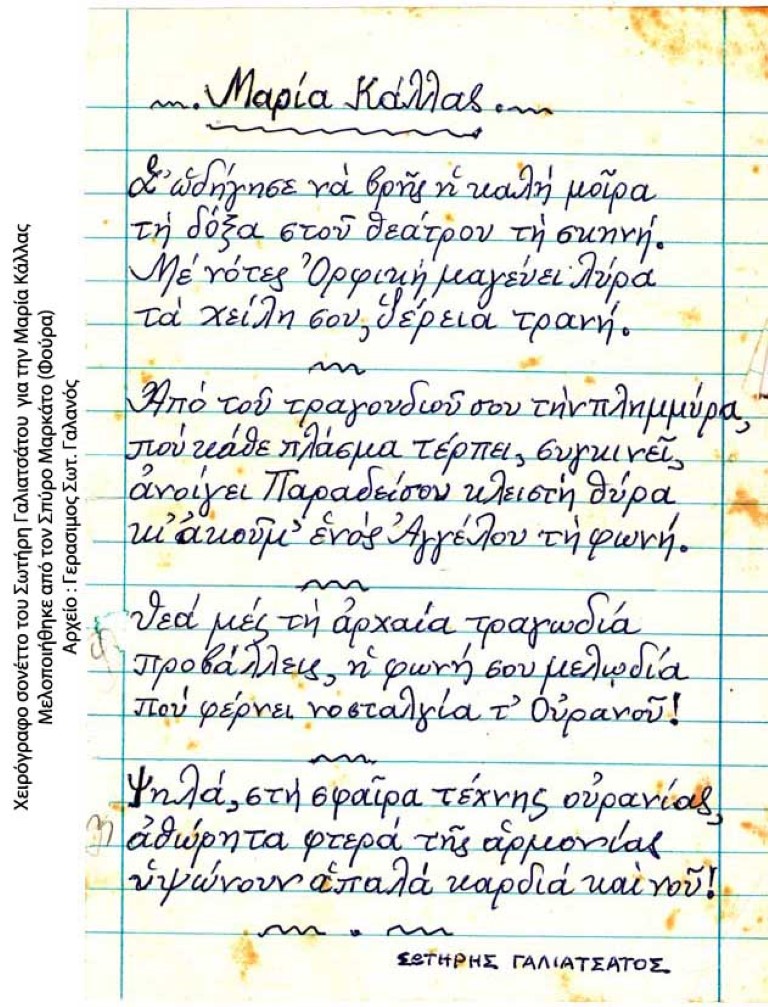 Χειρόγραφο σονέττο του Σωτήρη Γαλιατσάτου για την Μαρία Κάλλας
Μελοποιήθηκε από τον Σπύρο Μαρκάτο (Φούρα)
Αρχείο : Γεράσιμος Σωτ. Γαλανός
Μαρία Κάλλας
Σ' ὡδήγησε νά βρῇς ἡ καλή μοῖρα
τή δόξα στοῦ θεάτρου τή σκηνή.
Μέ νότες Ὀρφική μαγεύει λύρα
τά χείλη σου, ἀέρεια τρανή.
Ἀπό τοῦ τραγουδιοῦ σου τήν πλημμύρα,
πού κάθε πλάσμα τέρπει, συγκινεῖ,
ἀνοίγει Παραδείσου κλειστή θύρα
κι' ἀκοῦμ' ἑνός Ἀγγέλου τή φωνή.
Θεά μές τή ἀρχαία τραγωδία
προβάλλεις, ἡ φωνή σου μελῳδία
πού φέρνει νοσταλγία τ' Οὐρανοῦ!
Ψηλά, στή σφαῖρα τέχνης οὐρανίας,
ἀθώρητα φτερά τῆς ἁρμονίας
ὑψώνουν ἁπαλά καρδιά καί νοῦ!
ΣΩΤΗΡΗΣ ΓΑΛΙΑΤΣΑΤΟΣ